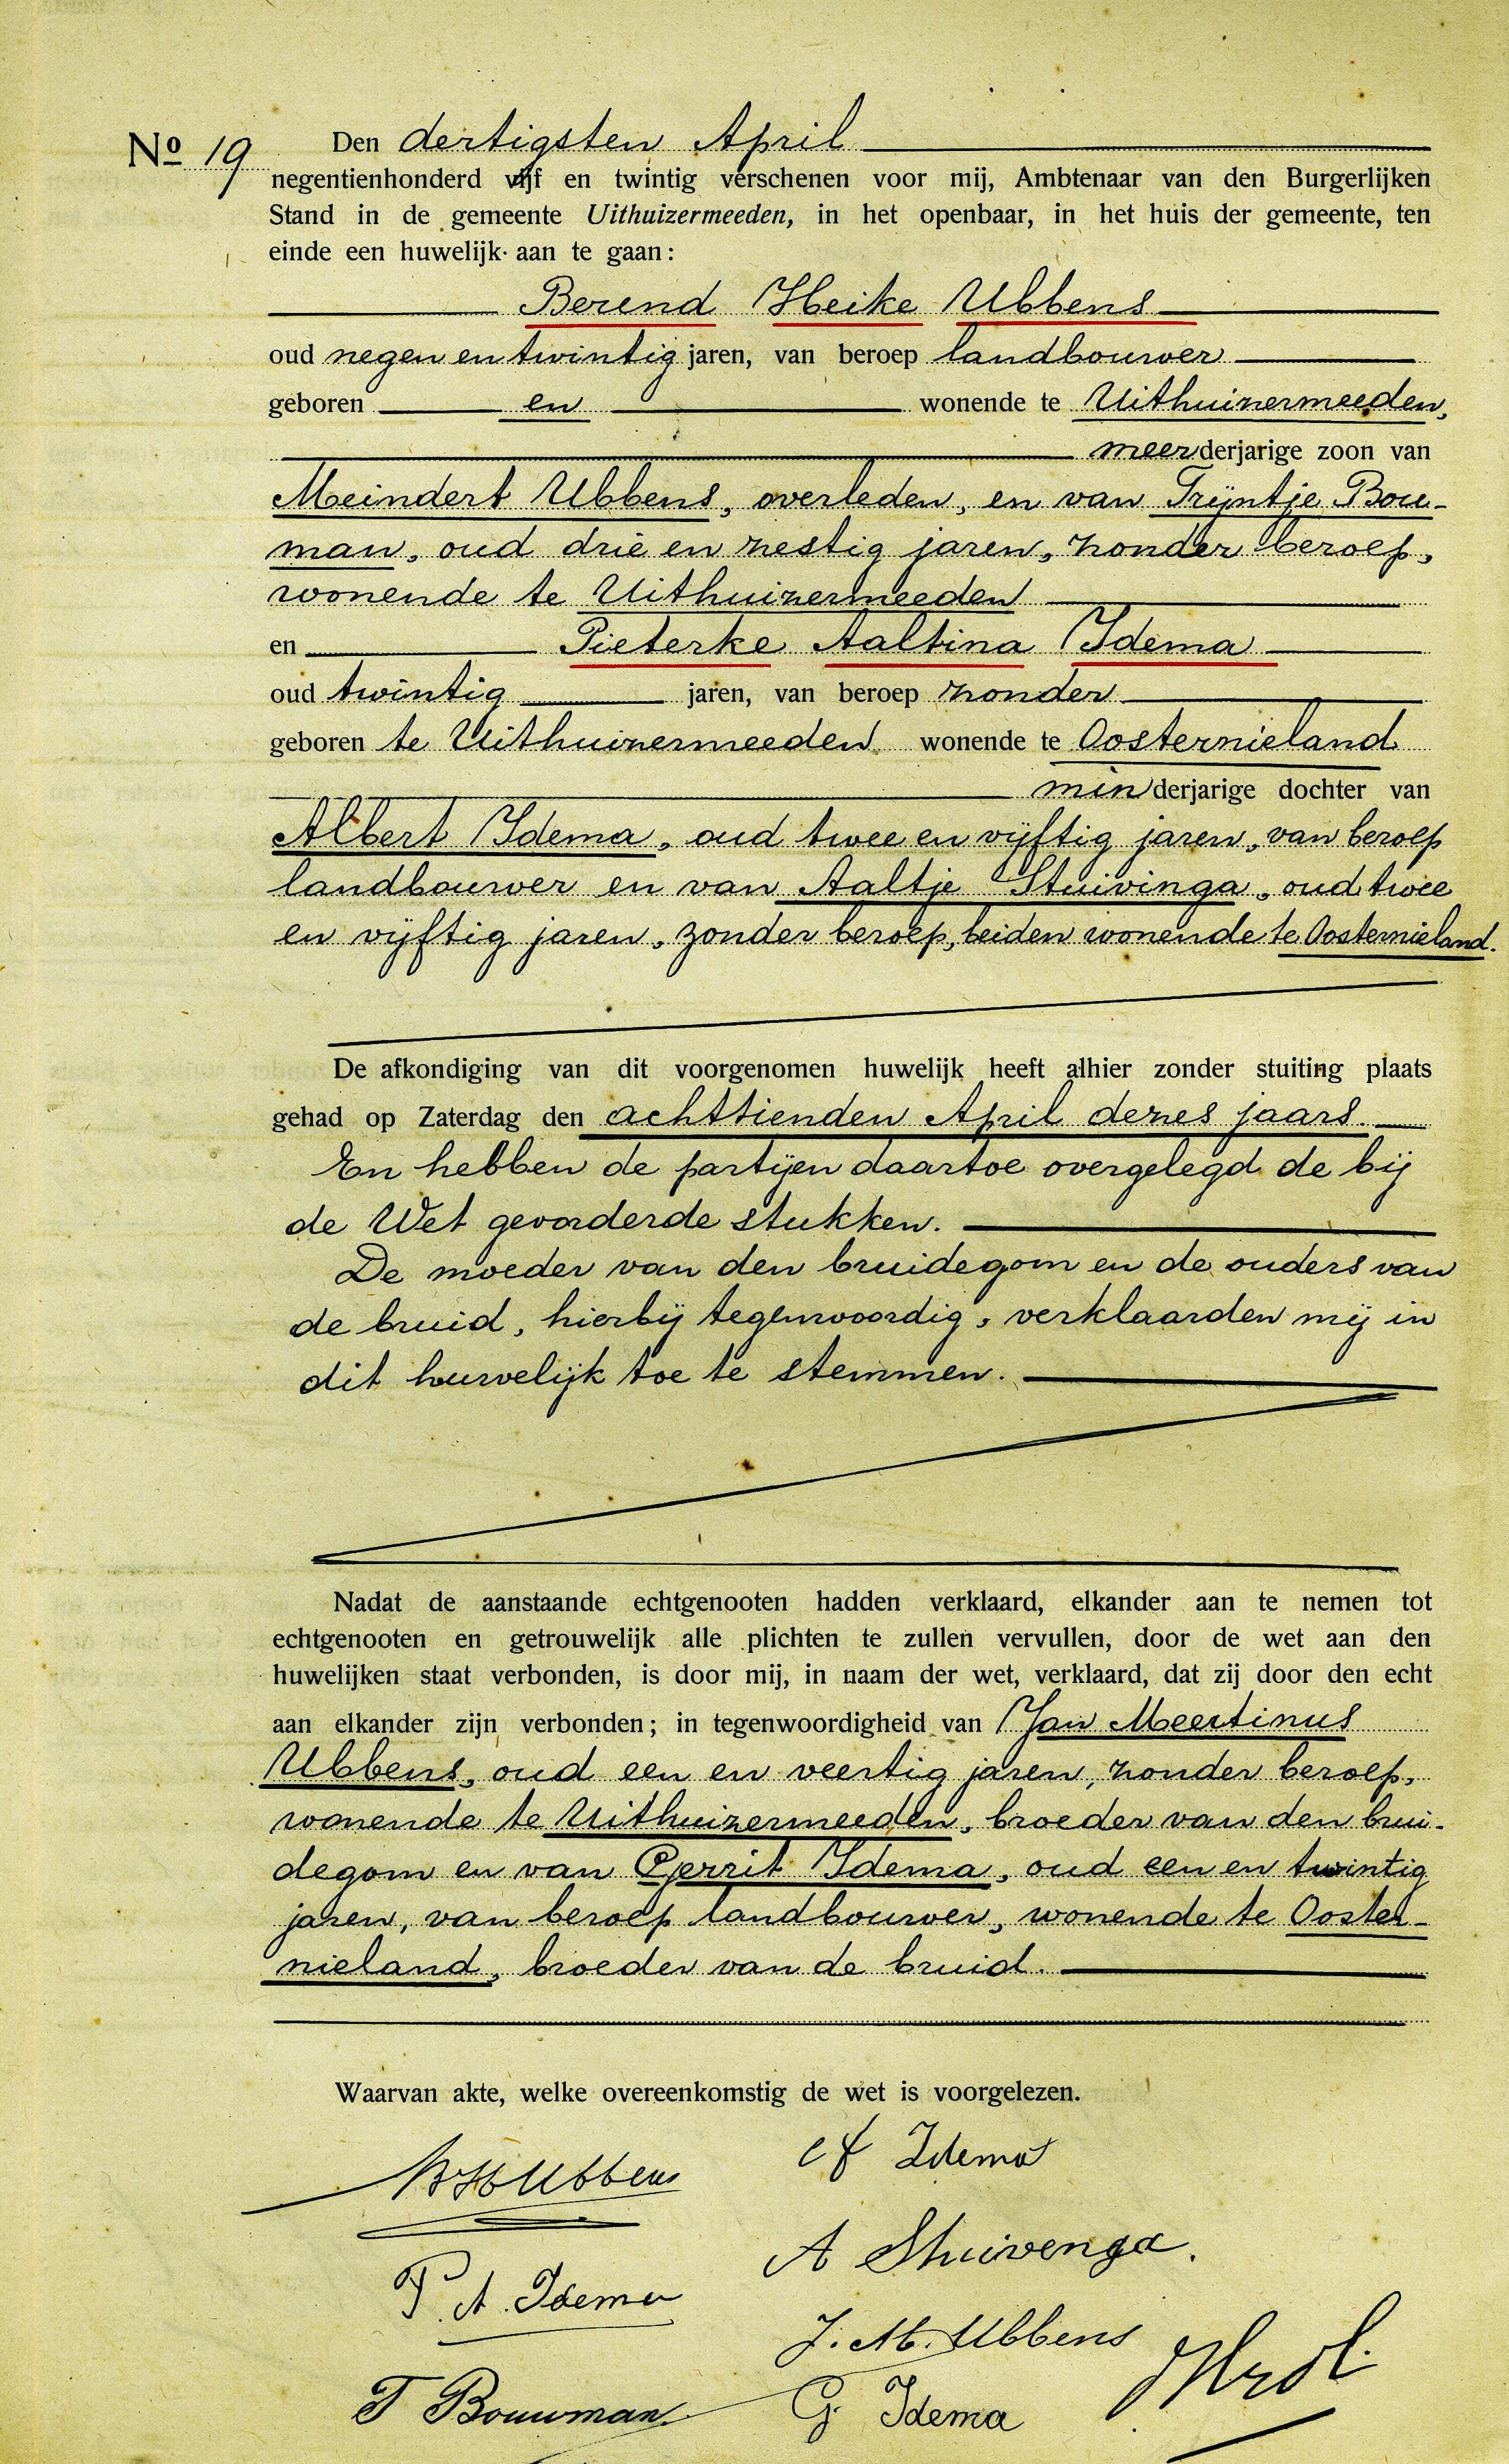 No 19 Den dertigsten April
negentienhonderd vijf en twintig verschenen voor mij, Ambtenaar van den Burgerlijken
Stand in de gemeente Uithuizermeeden, in het openbaar, in het huis der gemeente, ten
einde een huwelijk aan te gaan:
Berend Heike Ubbens
oud negen en twintig jaren, van beroep landbouwer
geboren en wonende te Uithuizermeeden,
meerderjarige zoon van
Meindert Ubbens, overleden, en van Trijntje Bou-
man, oud drie en zestig jaren, zonder beroep,
wonende te Uithuizermeeden
en Pieterke Aaltina Idema
oud twintig jaren, van beroep zonder
geboren te Uithuizermeeden wonende te Oosternieland
minderjarige dochter van
Albert Idema, oud twee en vijftig jaren, van beroep
landbouwer en van Aaltje Stuivinga, oud twee
en vijftig jaren, zonder beroep, beiden wonende te Oosternieland.
De afkondiging van dit voorgenomen huwelijk heeft alhier zonder stuiting plaats
gehad op Zaterdag den achttienden April dezes jaars.
En hebben de partijen daartoe overgelegd de bij
de Wet gevorderde stukken.
De moeder van den bruidegom en de ouders van
de bruid, hierbij tegenwoordig, verklaarden mij in
dit huwelijk toe te stemmen.
Nadat de aanstaande echtgenooten hadden verklaard, elkander aan te nemen tot
echtgenooten en getrouwelijk alle plichten te zullen vervullen, door de wet aan den
huwelijken staat verbonden, is door mij, in naam der wet, verklaard, dat zij door den echt
aan elkander zijn verbonden; in tegenwoordigheid van Jan Meertinus
Ubbens, oud een en veertig jaren, zonder beroep,
wonende te Uithuizermeeden, broeder van den brui-
degom en van Gerrit Idema, oud een en twintig
jaren, van beroep landbouwer, wonende te Ooster-
nieland, broeder van de bruid.
Waarvan akte, welke overeenkomstig de wet is voorgelezen.
A Idema
BHUbbens
A Stuivenga.
P. A. Idema
J. M. Ubbens
T Bouwman
G. Idema